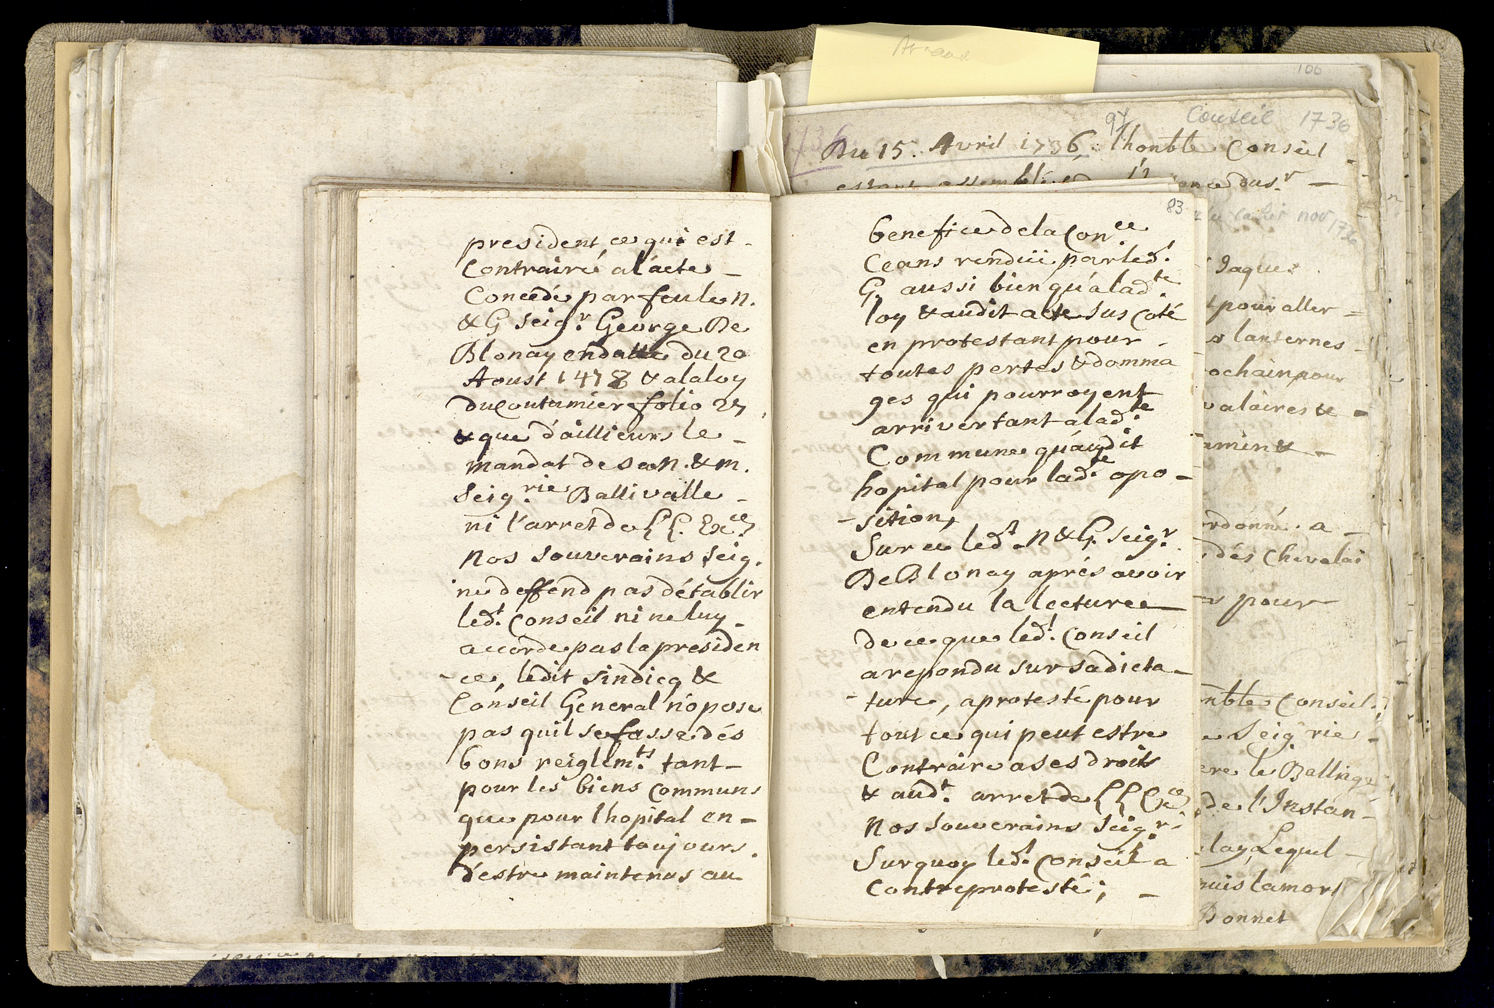 president, ce qui est -
Contrairé a l'acte -
Concedé par feu le N.
& G Seig.r George De
Blonay en datte du 20
Aoust 1478 & a la loy
du Coutumier folio 27
& que d'aillieurs le -
mandat de sa N. & m.
Seig.rie Ballivalle -
ni l'arret de LL. Ex.ces
Nos Souverains Seig.
ne deffend pas d'établir
led.t Conseil ni ne luy -
accorde pas la presiden
- ce, ledit Sindicq &
Conseil General n'opose
pas quil se fasse dés
bons reiglem.ts tant -
pour les biens Communs
que pour l'hopital en -
persistant toujours.
d'estre maintenus au
83
benefice de la Con.ce
Ceans rendüe par led.t
G. aussi bien qu'a lad.te
loy & audit acte sus coté
en protestant pour -
toutes pertes & domma
ges qui pourroyent
arriver tant a lad.te
Commune qu'audit
hopital pour lad.te opo -
- sition,
Sur ce led.t N & G. Seig.r
De Blonay aprés avoir
entendu la lecture
de ce que led.t Conseil
a repondu sur sa dicta -
- ture, a protesté pour
tout ce qui peut estre
Contraire a ses droits
& aud.t arret de LL Ex.ces
Nos Souverains Seig.rs
Surquoy led.t Conseil a
Contreprotesté; -
106
Conseil 1736
97
Du 15. Avril 1736. l'honble Conseil -
estant assemblé
Jaques
pour aller =
lanternes -
ochain pour
valaires &
ordonné a -
dés Chevalai
pour
nble Conseil.
Seig.rie -
le Ballivage
de l'Instan -
Lequel -
puis la mort
Bonnet